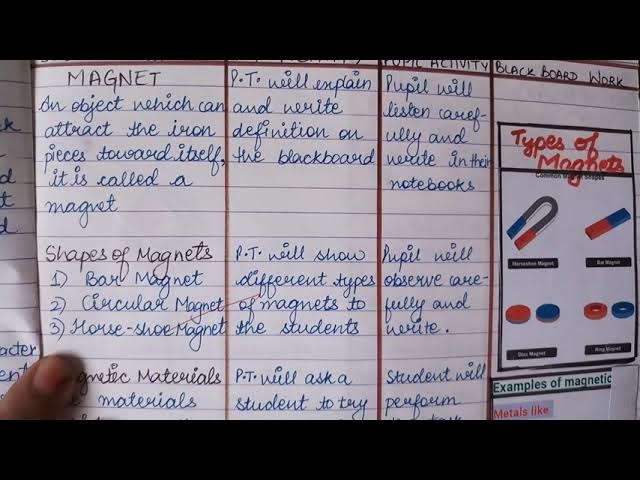 PUPIL ACTIVITY
BLACK BOARD WORK
MAGNET
An object which can
attract the iron
pieces toward itself,
it is called a
magnet
P.T. will explain
and write
definition on
the blackboard
Pupil will
listen caref-
ully and
write in their
notebooks
Types of
Magnets
Horseshoe Magnet
Bar Magnet
Disc Magnet
Ring Magnet
Shapes of Magnets
1) Bar Magnet
2) Circular Magnet
3) Horse-shoe Magnet
P.T. will show
different types
of magnets to
the students
Pupil will
observe care-
fully and
write.
Magnetic Materials
materials
P.T. will ask a
student to try
Student will
perform
Examples of magnetic
Metals like